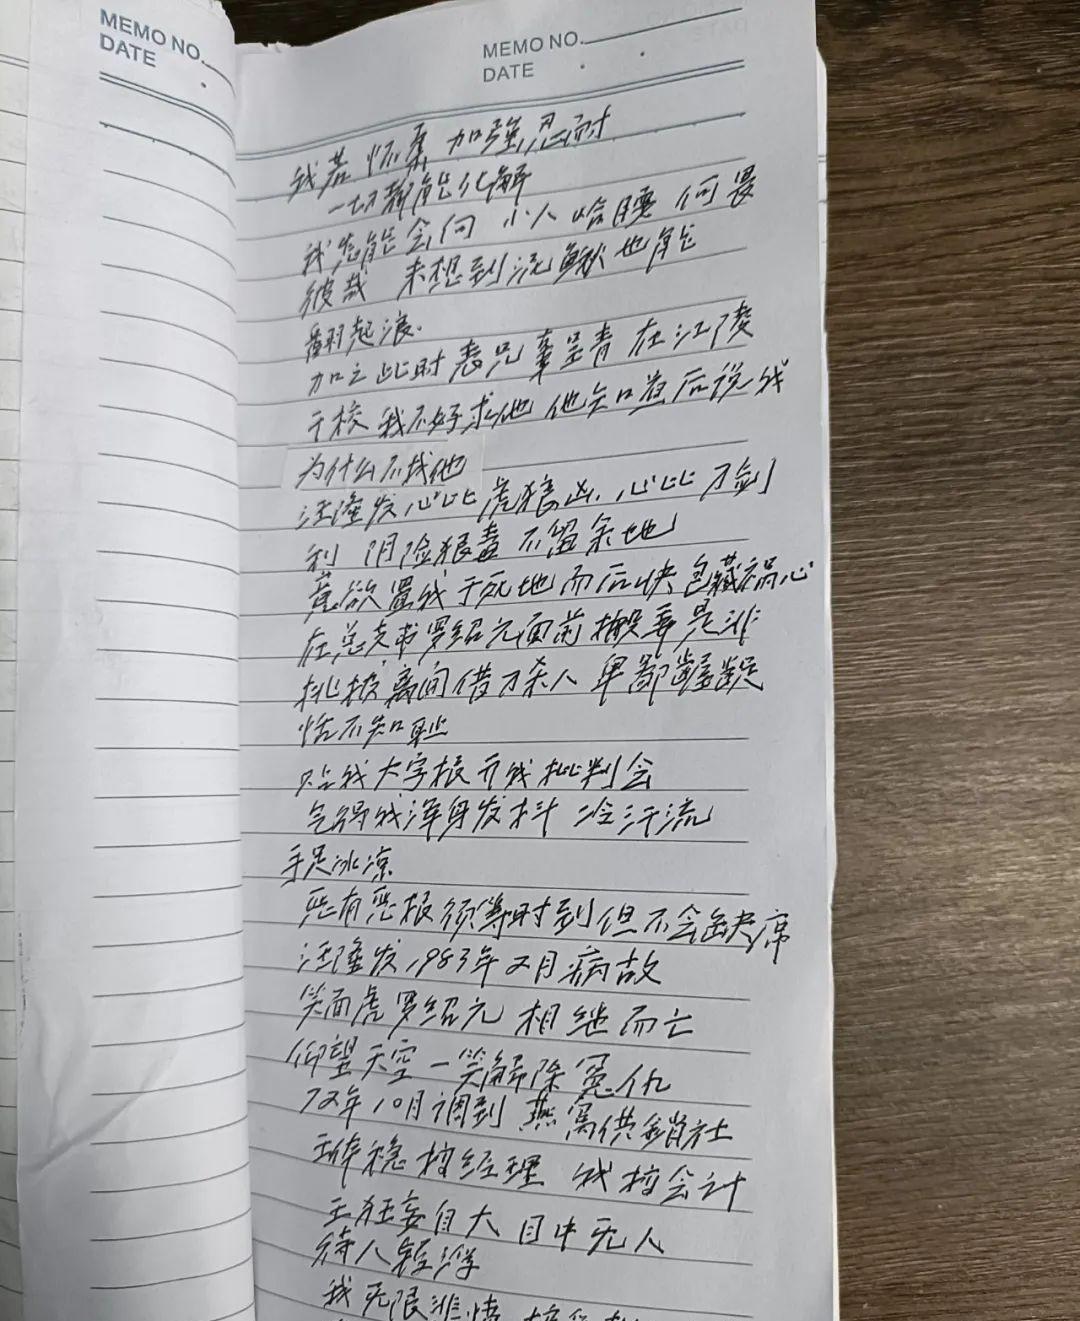 MEMO NO.
DATE
MEMO NO.
DATE
我若 怀柔 加强忍耐
一切都能化解
我总能会问 小人 何畏
彼哉 未想到泥鳅也能
翻起浪.
加之此时表兄 呈青 在江陵
干校 我不好求他 他知道后说我
为什么不找他
汪隆发心比虎狼凶 心比刀剑
利 阴险狠毒 不留余地
竟欲置我于死地而后快 包藏祸心
在总支书罗绍元面前搬弄是非
挑拨离间借刀杀人 卑鄙龌龊
恬不知耻
贴我大字报 开我批判会
气得我浑身发抖 冷汗流
手足冰凉
恶有恶报须等时到但不会缺席
汪隆发1983年2月病故
笑面虎罗绍元 相继而亡
仰望天空一笑解除冤仇
72年10月调到 燕窝供销社
王 稳 经理 我 会计
王狂妄自大 目中无人
待人轻浮
我无限悲愤